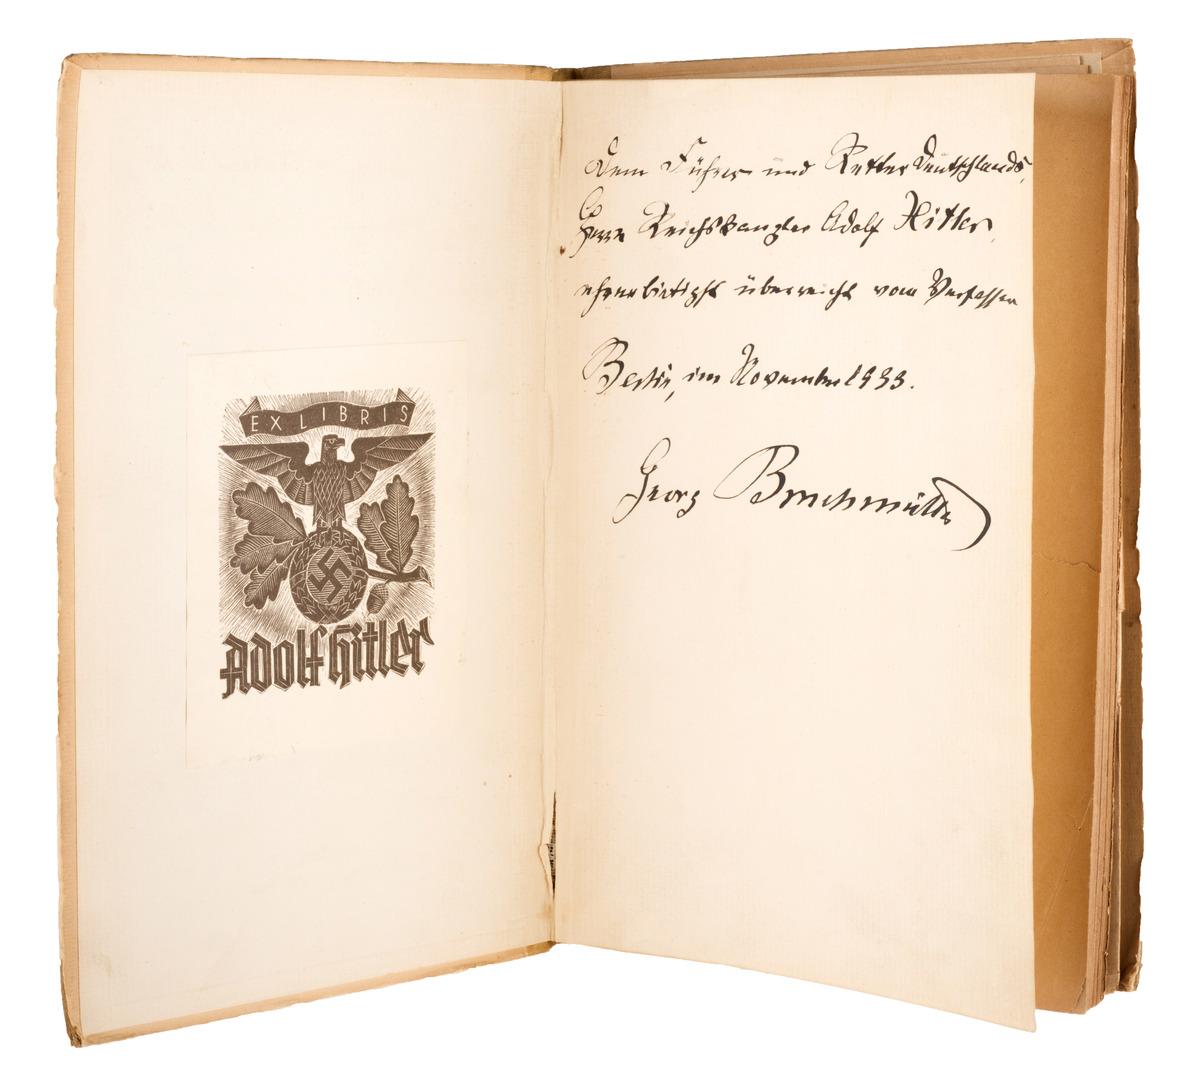 EX LIBRIS
Adolf Hitler
Dem Führer und Retter Deutschlands,
Herrn Reichskanzler Adolf Hitler,
ehrerbietigst überreicht vom Verfasser
Berlin, im November 1933.
Georg Bruchmüller